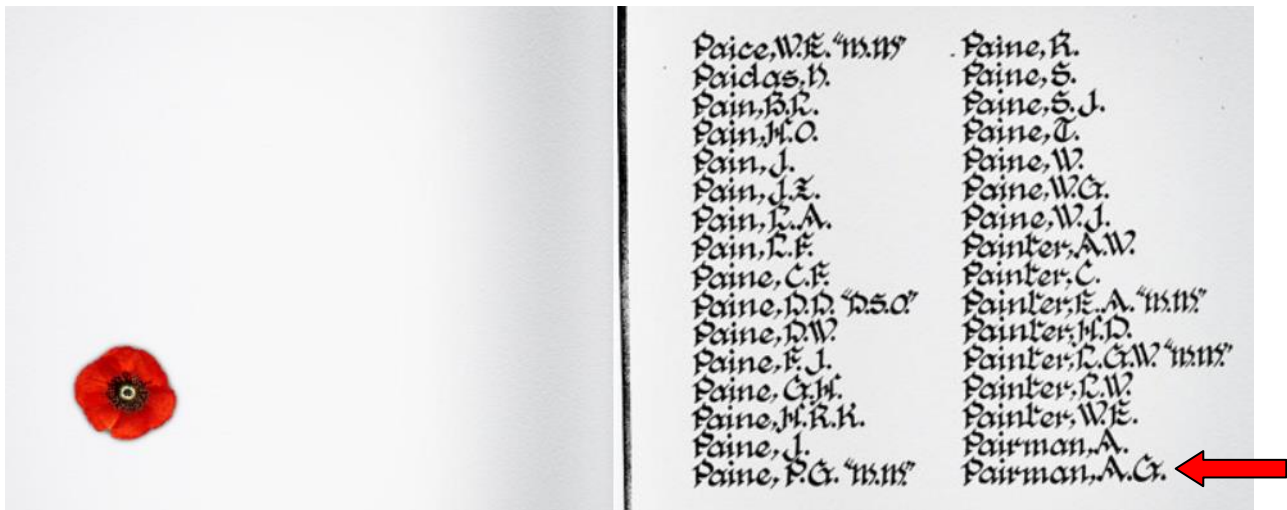 Paice, W.E. "M.M"
Paidas, N.
Pain, B.L.
Pain, H.O.
Pain, J.
Pain, J.Z.
Pain, L.A.
Pain, L.F.
Paine, C.F.
Paine, D.D. "D.S.O."
Paine, D.W.
Paine, F.J.
Paine, G.H.
Paine, H.R.K.
Paine, J.
Paine, P.G. "M.M."
Paine, R.
Paine, S.
Paine, S.J.
Paine, T.
Paine, W.
Paine, W.G.
Paine, W.J.
Painter, A.W.
Painter, C.
Painter, E.A. "M.M."
Painter, H.D.
Painter, L.G.W. "M.M."
Painter, L.W.
Painter, W.E.
Pairman, A.
Pairman, A.G.